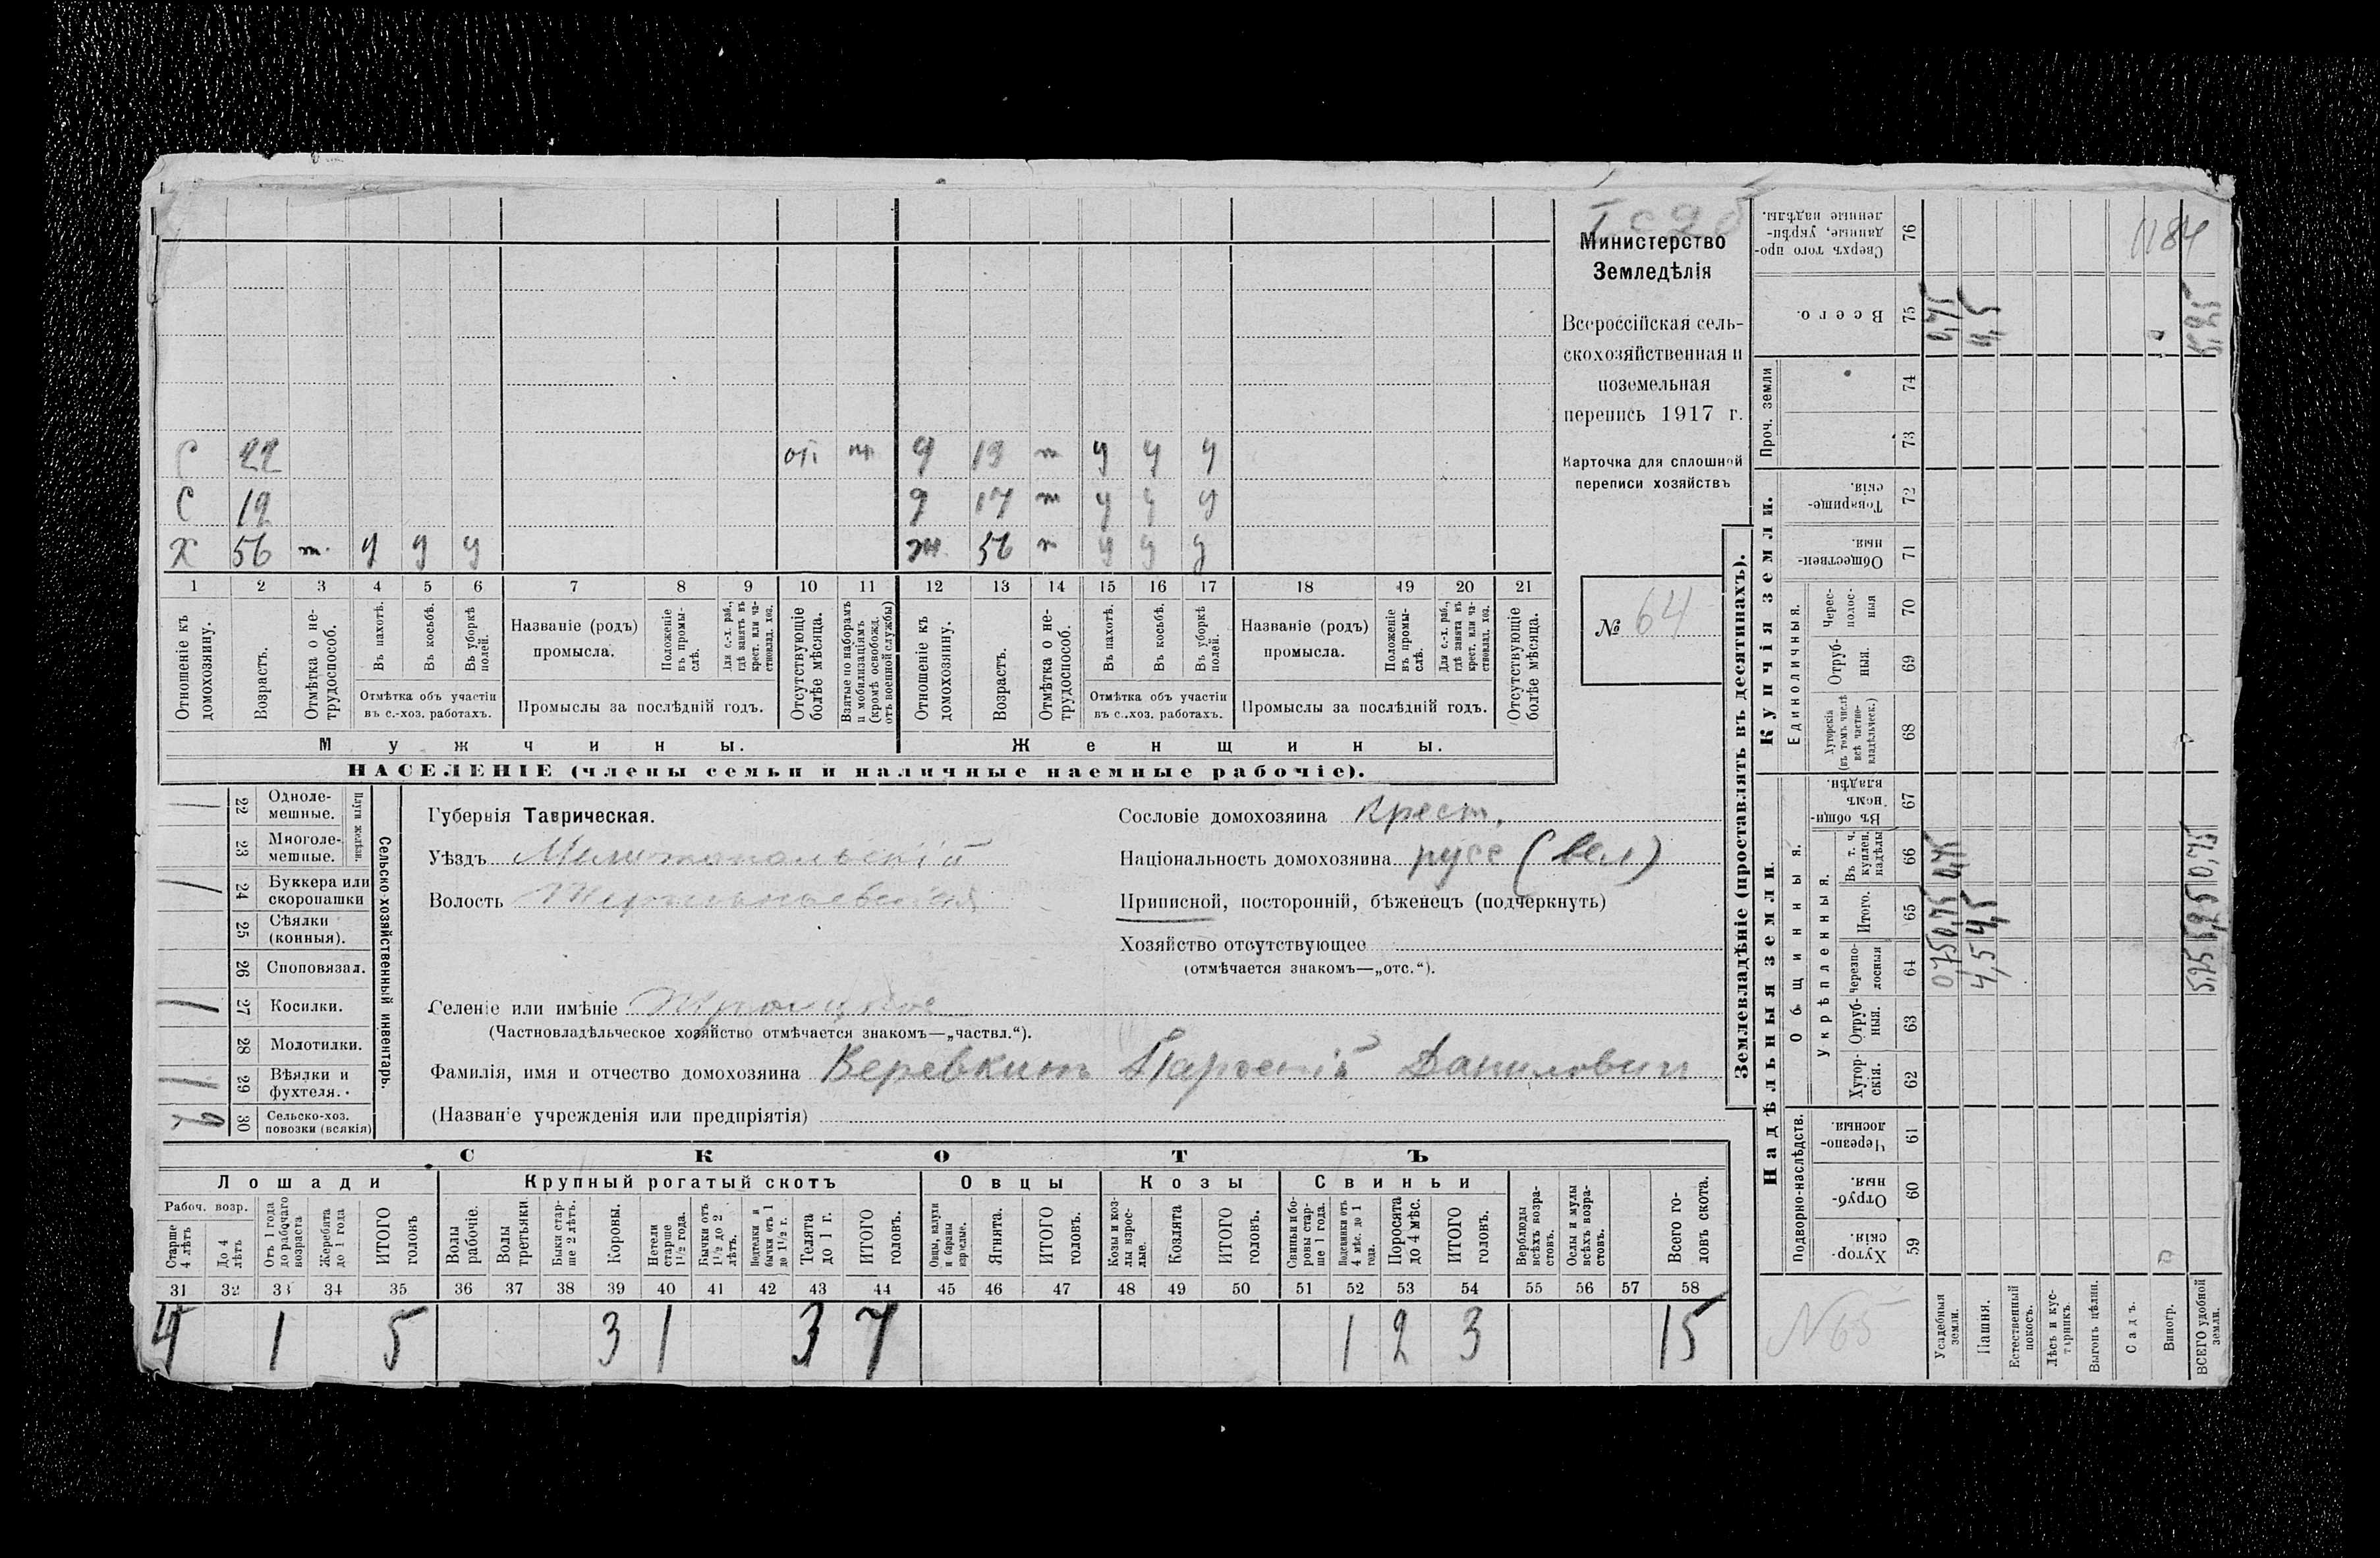 Министерство
Земледѣлія
Всероссійская сель-
скохозяйственная и
поземельная
перепись 1917 г.
Карточка для сплошной
переписи хозяйствъ
№ 64
С 22 оп. д 19 т у у у
С 12 д 17 т у у у
Х 56 т. у у у ж. 56 т у у у
1 2 3 4 5 6 7 8 9 10 11 12 13 14 15 16 17 18 19 20 21
Отношеніе къ домохозяину.
Возрастъ.
Отмѣтка о не-трудоспособ.
Въ пахотѣ.
Въ косьбѣ.
Въ уборкѣ полей.
Отмѣтка объ участіи
въ с.-хоз. работахъ.
Названіе (родъ)
промысла.
Положеніе въ промы-слѣ.
Для с.-х. раб., гдѣ занятъ въ крест. или ча-ствовлад. хоз.
Промыслы за послѣдній годъ.
Отсутствующіе болѣе мѣсяца.
Взятые по наборамъ и мобилизаціямъ (кромѣ освобожд. отъ военной службы)
Отношеніе къ домохозяину.
Возрастъ.
Отмѣтка о не-трудоспособ.
Въ пахотѣ.
Въ косьбѣ.
Въ уборкѣ полей.
Отмѣтка объ участіи
въ с.-хоз. работахъ.
Названіе (родъ)
промысла.
Положеніе въ промы-слѣ.
Для с.-х. раб., гдѣ занята въ крест. или ча-ствовлад. хоз.
Промыслы за послѣдній годъ.
Отсутствующіе болѣе мѣсяца.
Мужчины. Женщины.
НАСЕЛЕНІЕ (члены семьи и наличные наемные рабочіе).
Сельско-хозяйственный инвентарь.
Плуги желѣзн.
1 22 Одноле-мешные.
23 Многоле-мешные.
1 24 Буккера или скоропашки
25 Сѣялки (конныя).
26 Споповязал.
1 27 Косилки.
28 Молотилки.
1 29 Вѣялки и фухтеля.
30 Сельско-хоз. повозки (всякія)
Губернія Таврическая.
Уѣздъ Мелитопольскій
Волость
Селеніе или имѣніе Троицкое
(Частновладѣльческое хозяйство отмѣчается знакомъ—„частвл.“).
Фамилія, имя и отчество домохозяина Веревкинъ Парфеній Данилович
(Названіе учрежденія или предпріятія)
Сословіе домохозяина Крест.
Національность домохозяина русс (вел)
Приписной, посторонній, бѣженецъ (подчеркнуть)
Хозяйство отсутствующее
(отмѣчается знакомъ—„отс.“).
СКОТЪ
Лошади Крупный рогатый скотъ Овцы Козы Свиньи
Рабоч. возр.
Старше 4 лѣтъ
До 4 лѣтъ
Отъ 1 года до рабочаго возраста
Жеребята до 1 года
ИТОГО головъ
Волы рабочіе.
Волы третьяки.
Быки стар-ше 2 лѣтъ.
Коровы.
Нетели старше 1½ года.
Бычки отъ 1½ до 2 лѣтъ.
Подтелки и бычки отъ 1 до 1½ г.
Телята до 1 г.
ИТОГО головъ.
Овцы, валухи и бараны взрослые.
Ягнята.
ИТОГО головъ.
Козы и коз-лы взрос-лые.
Козлята
ИТОГО головъ.
Свиньи и бо-ровы стар-ше 1 года.
Подсвинки отъ 4 мѣс. до 1 года.
Поросята до 4 мѣс.
ИТОГО головъ.
Верблюды всѣхъ возра-стовъ.
Ослы и мулы всѣхъ возра-стовъ.
Всего го-ловъ скота.
31 32 33 34 35 36 37 38 39 40 41 42 43 44 45 46 47 48 49 50 51 52 53 54 55 56 57 58
4 1 5 3 1 3 7 1 2 3 15
Землевладѣніе (проставлять въ десятинахъ).
Надѣльныя земли. Купчія земли. Проч. земли
Подворно-наслѣдств.
Общинныя.
Укрѣпленныя.
Единоличныя.
Хутор-скія. 59
Отруб-ныя. 60
Черезпо-лосныя 61
Хутор-скія. 62
Отруб-ныя. 63
Черезпо-лосныя 64
Итого. 65
Въ т. ч. куплен. надѣлы 66
Въ общин-номъ владѣн. 67
Хуторскія (въ томъ числѣ всѣ частно-владѣльческ.) 68
Отруб-ныя. 69
Черес-полос-ныя 70
Обществен-ныя. 71
Товарище-скія. 72
73
74
Всего. 75
Сверхъ того про-данные, укрѣп-ленные надѣлы. 76
№ 65
Усадебныя земли. 0,75 0,75 0,75 0,75
Пашня. 4,5 4,5 4,5
Естественный покосъ.
Лѣсъ и кус-тарникъ.
Выгонъ цѣлин.
Садъ.
Виногр.
ВСЕГО удобной земли. 5,25 5,25 0,75 5,25
1184